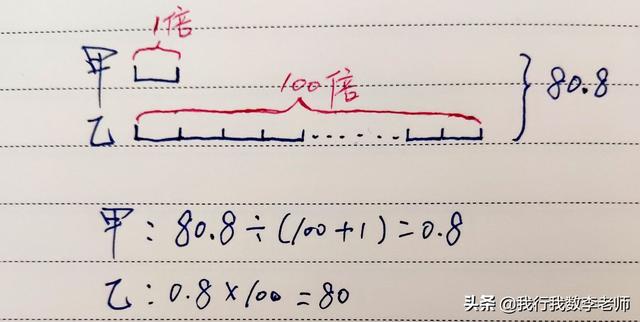 1倍
甲
100倍
80.8
乙
甲：80.8÷(100+1)=0.8
乙：0.8×100=80
头条 @我行我数李老师